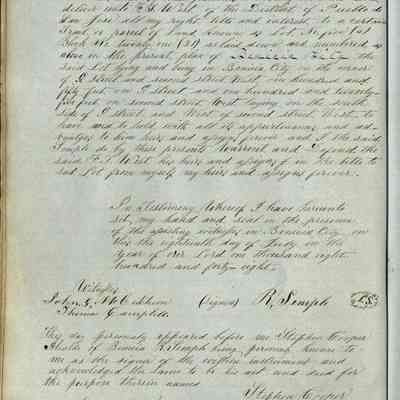 deliver unto F. G. West of the District of Pueblo de
San Jose all my right title and interest to a certain
Tract or parcel of land known as Lot No five (5)
Block No twenty one (21) as laid down and numbered as
above in the present plan of Benicia City the
said Lot lying and being in Benicia City on the corner
of D Street and second Street West one hundred and
fifty feet on D Street and one hundred and twenty-
five feet on second Street West laying on the south
side of D Street and West of second Street West, to
have and to hold with all its appurtenances and ad-
vantages to him his heirs and assigns forever and I the said
Semple do by these presents Warrant and Defend the
said F. G. West his heirs and assigns in the title to
said Lot from myself my heirs and assigns forever.
In Testimony whereof I have hereunto
set my hand and seal in the presence
of the subscribing witnesses in Benicia City on
this the eighteenth day of July in the
year of our Lord one thousand eight
hundred and forty-eight.
Witnesses
John G. McCickham (signed) R. Semple (L.S)
Thomas Campbell
This day personally appeared before me Stephen Cooper
Alcalde of Benicia R. Semple being personally known to
me as the signer of the within instrument and
acknowledged the same to be his act and deed for
the purpose therein named
Stephen Cooper